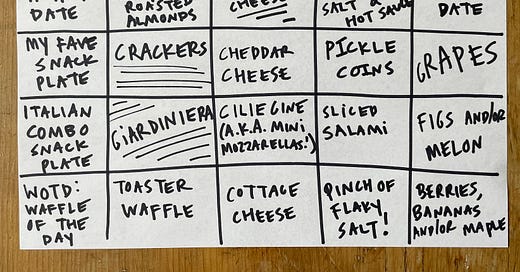 DATE
ROASTED
ALMONDS
CHEESE
SALT &
HOT SAUCE
DATE
MY FAVE
SNACK
PLATE
CRACKERS
CHEDDAR
CHEESE
PICKLE
COINS
GRAPES
ITALIAN
COMBO
SNACK
PLATE
GIARDINIERA
CILIEGINE
(A.K.A. MINI
MOZZARELLAS!)
SLICED
SALAMI
FIGS AND/OR
MELON
WOTD:
WAFFLE
OF THE
DAY
TOASTER
WAFFLE
COTTAGE
CHEESE
PINCH OF
FLAKY
SALT!
BERRIES,
BANANAS
AND/OR MAPLE